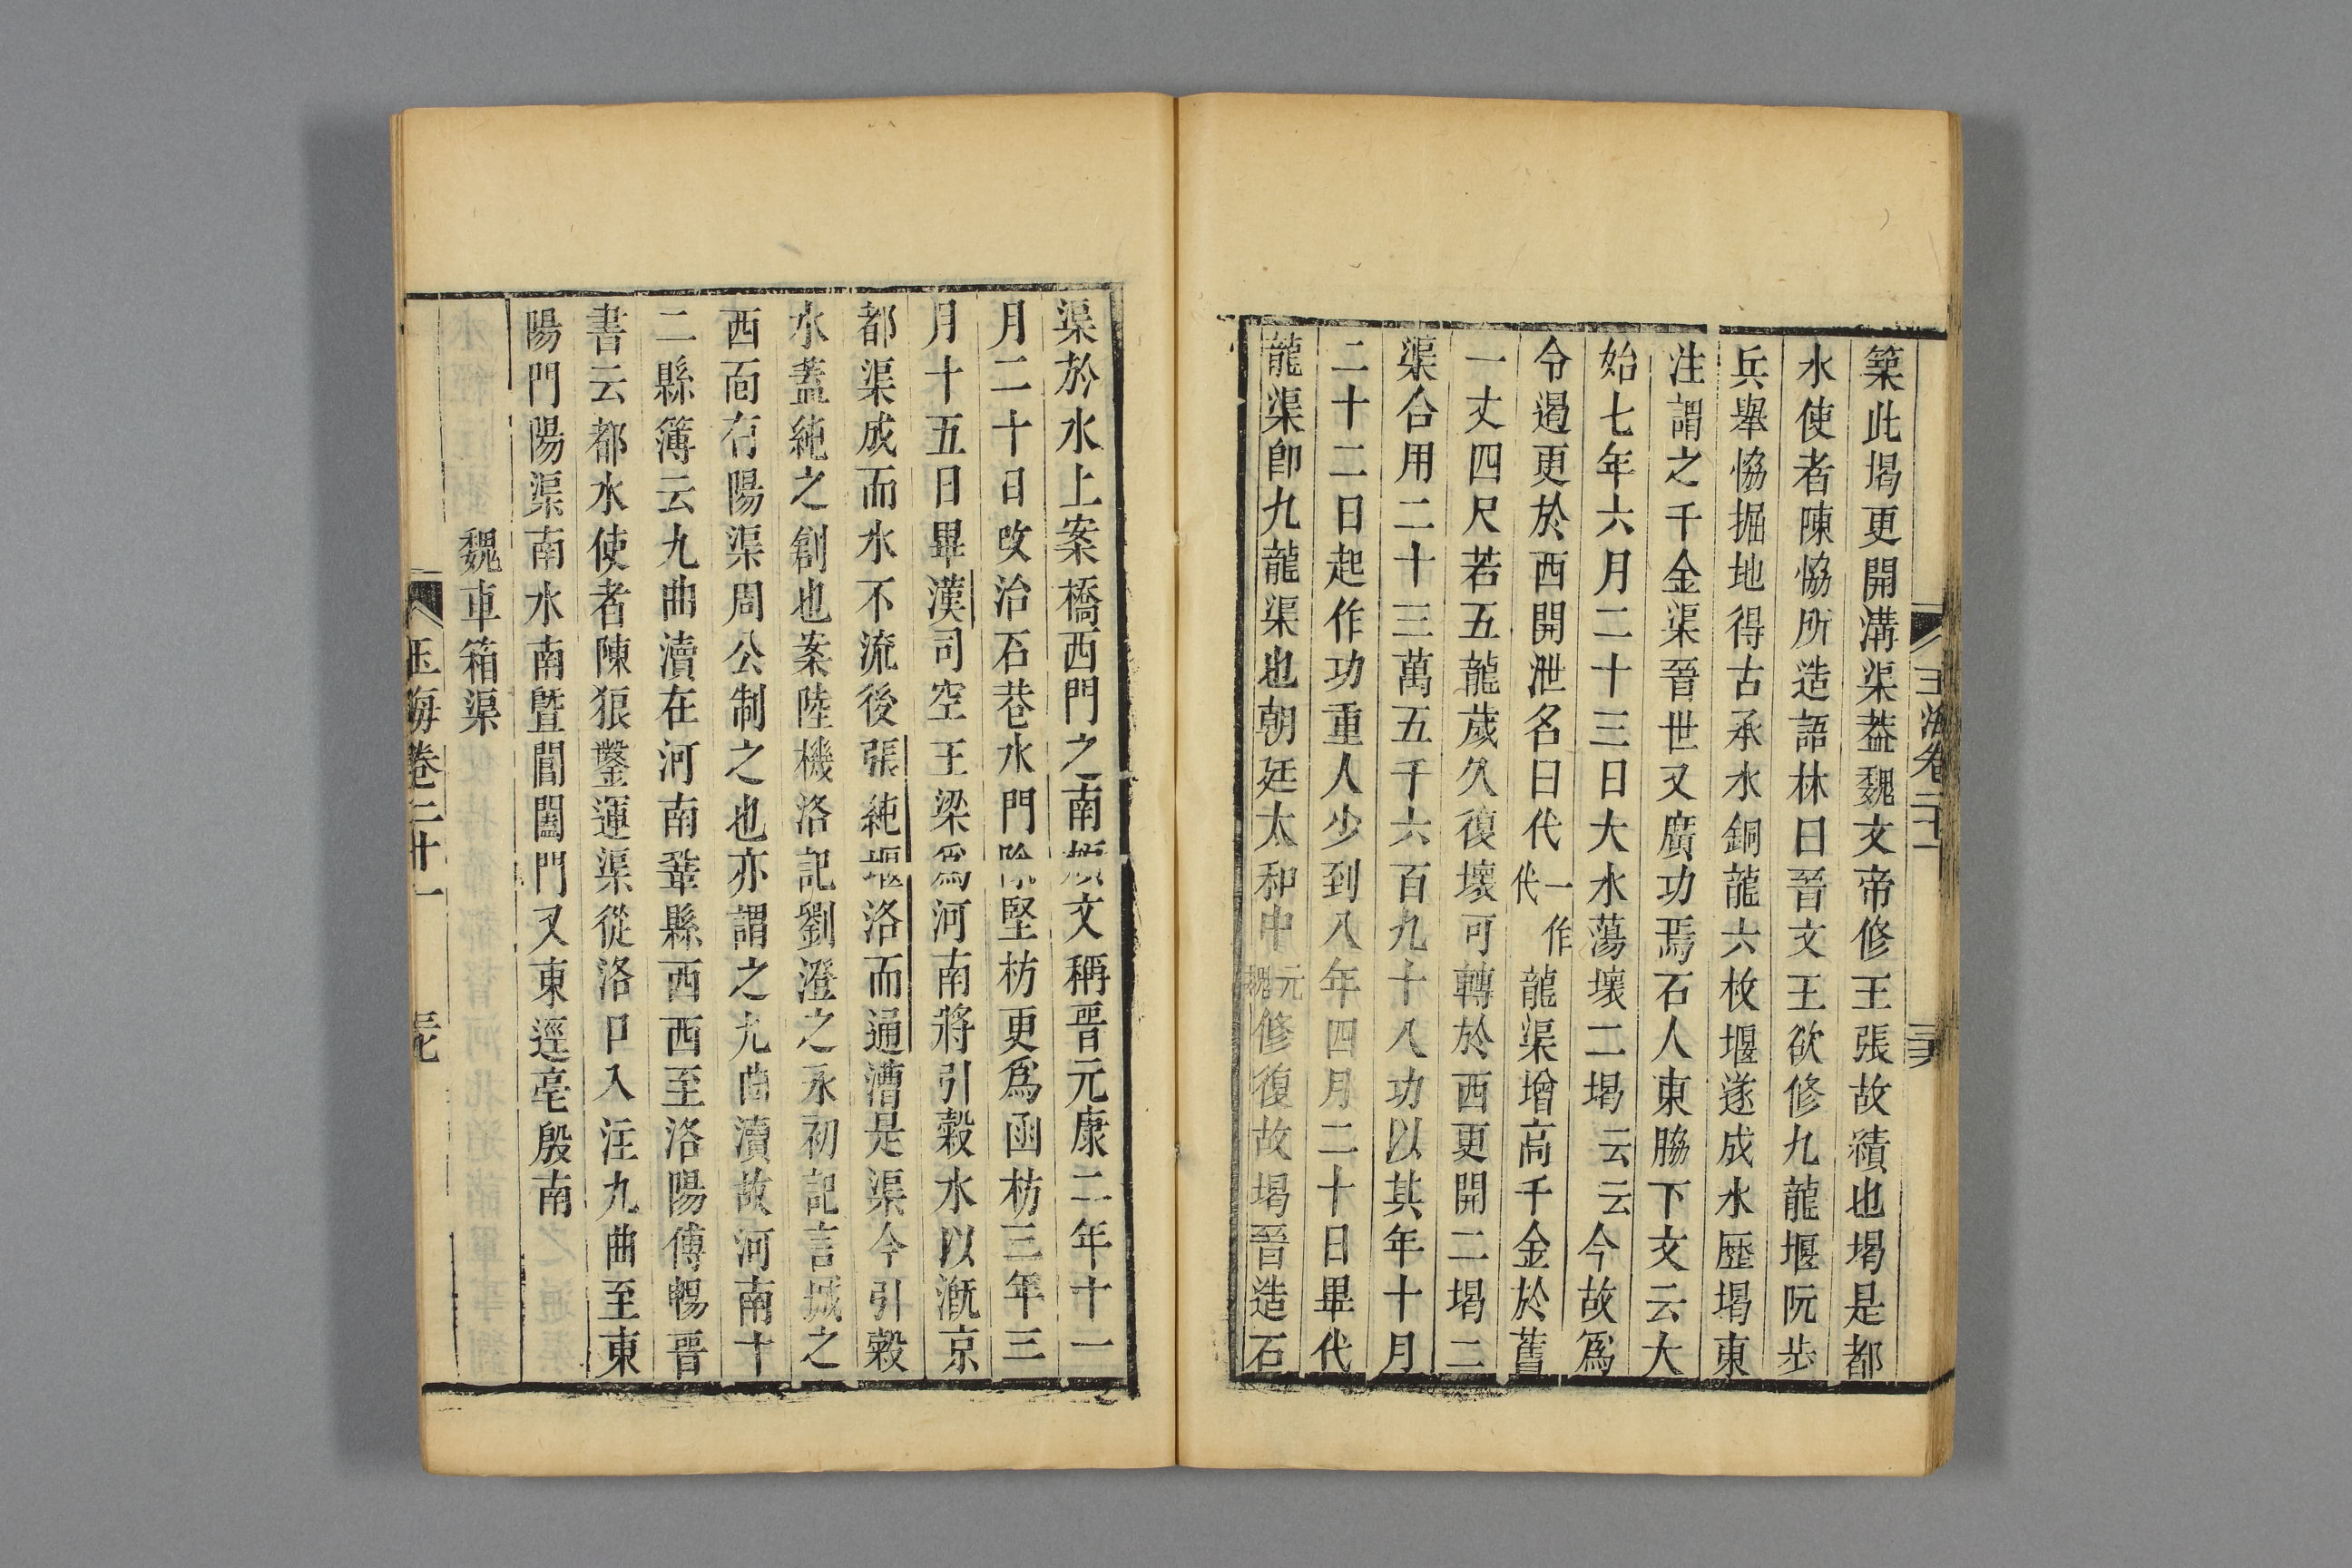 築此堨更開溝渠蓋魏文帝修王張故績也堨是都
水使者陳恊所造語林曰晉文王欲修九龍堰阮步
兵舉恊掘地得古承水銅龍六枚堰遂成水歷堨東
注謂之千金渠晉世又廣功焉石人東脇下文云大
始七年六月二十三日大水蕩壞二堨云云今故爲
令遏更於西開泄名曰代一作代龍渠增高千金於舊
一丈四尺若五龍歲久復壞可轉於西更開二堨二
渠合用二十三萬五千六百九十八功以其年十月
二十二日起作功重人少到八年四月二十日畢代
龍渠卽九龍渠也朝廷太和中元魏修復故堨晉造石
渠於水上案橋西門之南頰文稱晉元康二年十一
月二十日改治石巷水門除堅枋更爲函枋三年三
月十五日畢漢司空王梁爲河南將引穀水以漑京
都渠成而水不流後張純堰洛而通漕是渠今引穀
水蓋純之創也案陸機洛記劉澄之永初記言城之
西面有陽渠周公制之也亦謂之九曲瀆故河南十
二縣簿云九曲瀆在河南鞏縣西西至洛陽傅暢晉
書云都水使者陳狼鑿運渠從洛口入注九曲至東
陽門陽渠南水南暨閶闔門又東逕亳殷南
魏車箱渠
玉海卷二十一